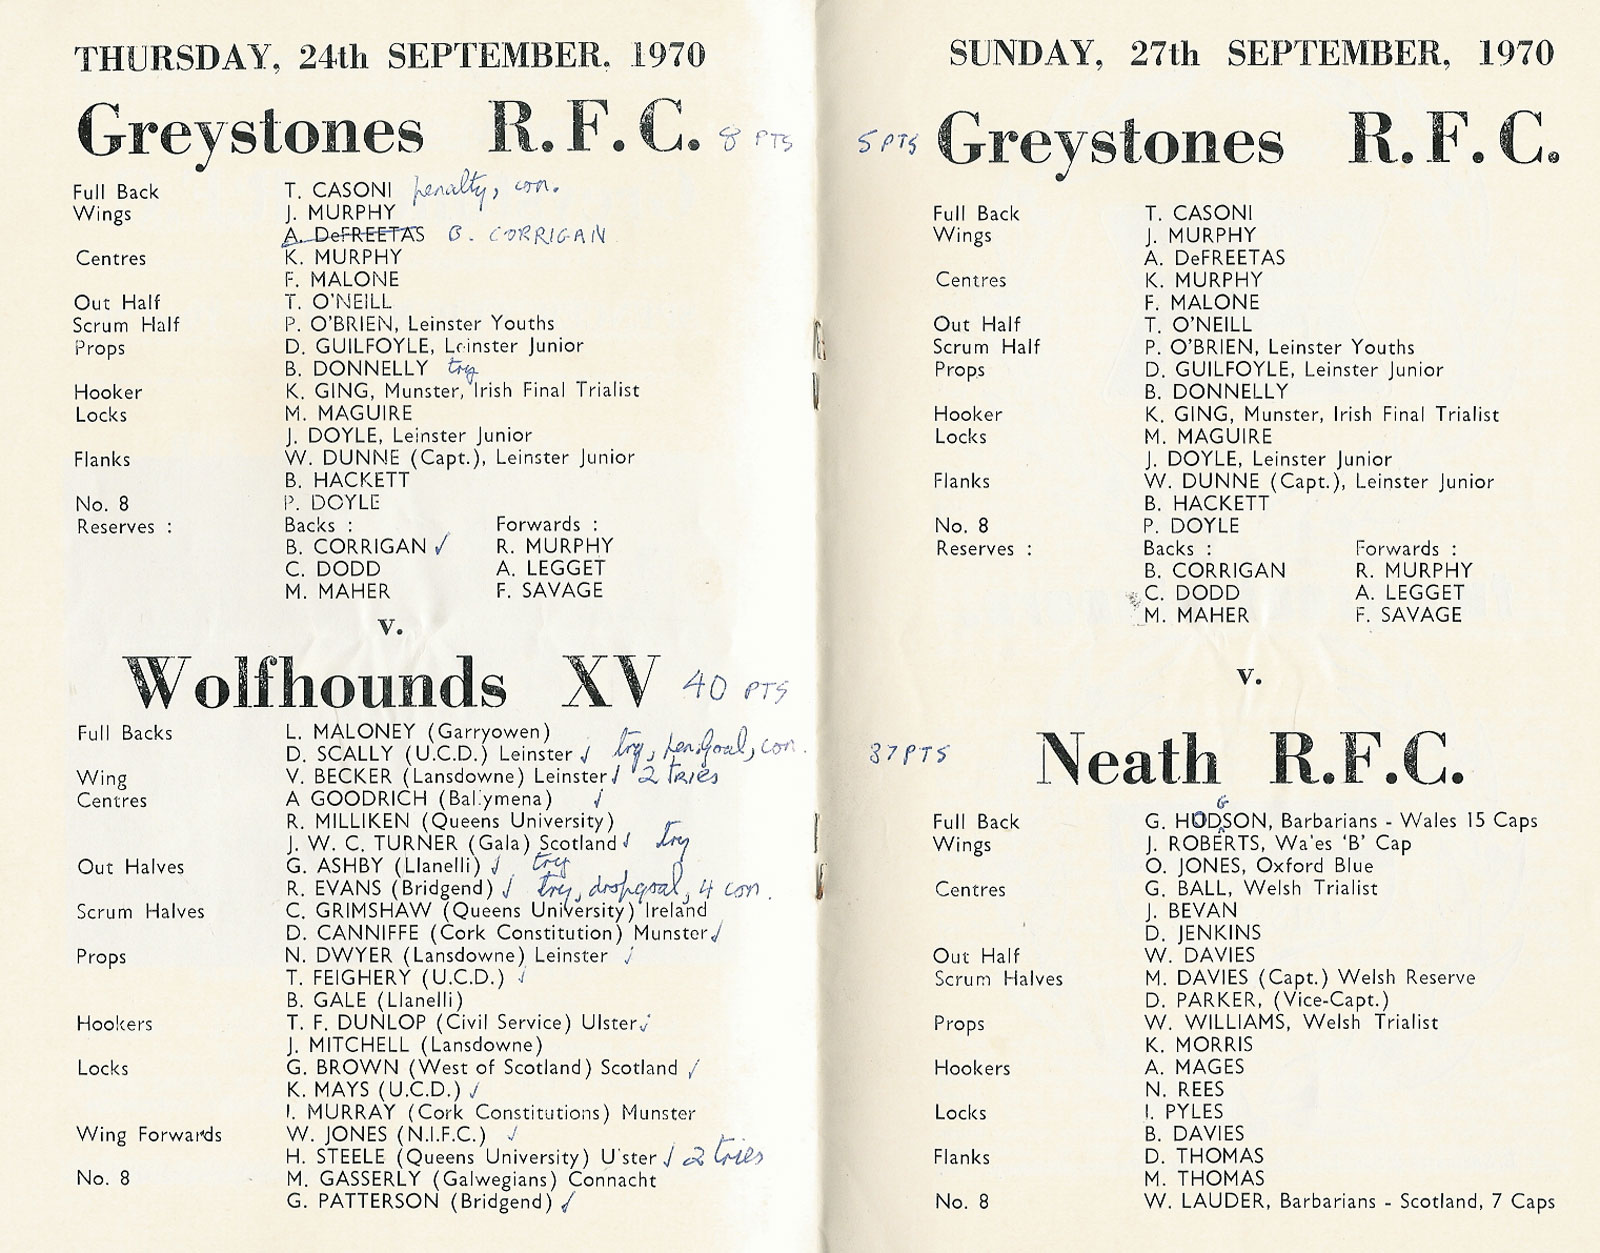 THURSDAY, 24th SEPTEMBER, 1970
Greystones R.F.C. 8 PTS
Full Back T. CASONI penalty, con.
Wings J. MURPHY
A. DeFREETAS B. CORRIGAN
Centres K. MURPHY
F. MALONE
Out Half T. O'NEILL
Scrum Half P. O'BRIEN, Leinster Youths
Props D. GUILFOYLE, Leinster Junior
B. DONNELLY try
Hooker K. GING, Munster, Irish Final Trialist
Locks M. MAGUIRE
J. DOYLE, Leinster Junior
Flanks W. DUNNE (Capt.), Leinster Junior
B. HACKETT
No. 8 P. DOYLE
Reserves : Backs : Forwards :
B. CORRIGAN ✓ R. MURPHY
C. DODD A. LEGGET
M. MAHER F. SAVAGE
v.
Wolfhounds XV 40 PTS
Full Backs L. MALONEY (Garryowen)
D. SCALLY (U.C.D.) Leinster ✓ try, pen.goal, con.
Wing V. BECKER (Lansdowne) Leinster ✓ 2 tries
Centres A GOODRICH (Ballymena) ✓
R. MILLIKEN (Queens University)
J. W. C. TURNER (Gala) Scotland ✓ try
Out Halves G. ASHBY (Llanelli) ✓ try
R. EVANS (Bridgend) ✓ try, dropgoal, 4 con.
Scrum Halves C. GRIMSHAW (Queens University) Ireland
D. CANNIFFE (Cork Constitution) Munster ✓
Props N. DWYER (Lansdowne) Leinster ✓
T. FEIGHERY (U.C.D.) ✓
B. GALE (Llanelli)
Hookers T. F. DUNLOP (Civil Service) Ulster ✓
J. MITCHELL (Lansdowne)
Locks G. BROWN (West of Scotland) Scotland ✓
K. MAYS (U.C.D.) ✓
I. MURRAY (Cork Constitutions) Munster
Wing Forwards W. JONES (N.I.F.C.) ✓
H. STEELE (Queens University) Ulster ✓ 2 tries
No. 8 M. GASSERLY (Galwegians) Connacht
G. PATTERSON (Bridgend) ✓
SUNDAY, 27th SEPTEMBER, 1970
5 PTS Greystones R.F.C.
Full Back T. CASONI
Wings J. MURPHY
A. DeFREETAS
Centres K. MURPHY
F. MALONE
Out Half T. O'NEILL
Scrum Half P. O'BRIEN, Leinster Youths
Props D. GUILFOYLE, Leinster Junior
B. DONNELLY
Hooker K. GING, Munster, Irish Final Trialist
Locks M. MAGUIRE
J. DOYLE, Leinster Junior
Flanks W. DUNNE (Capt.), Leinster Junior
B. HACKETT
No. 8 P. DOYLE
Reserves : Backs : Forwards :
B. CORRIGAN R. MURPHY
C. DODD A. LEGGET
M. MAHER F. SAVAGE
v.
37 PTS Neath R.F.C.
G
Full Back G. HODSON, Barbarians - Wales 15 Caps
Wings J. ROBERTS, Wa'es 'B' Cap
O. JONES, Oxford Blue
Centres G. BALL, Welsh Trialist
J. BEVAN
D. JENKINS
Out Half W. DAVIES
Scrum Halves M. DAVIES (Capt.) Welsh Reserve
D. PARKER, (Vice-Capt.)
Props W. WILLIAMS, Welsh Trialist
K. MORRIS
Hookers A. MAGES
N. REES
Locks I. PYLES
B. DAVIES
Flanks D. THOMAS
M. THOMAS
No. 8 W. LAUDER, Barbarians - Scotland, 7 Caps